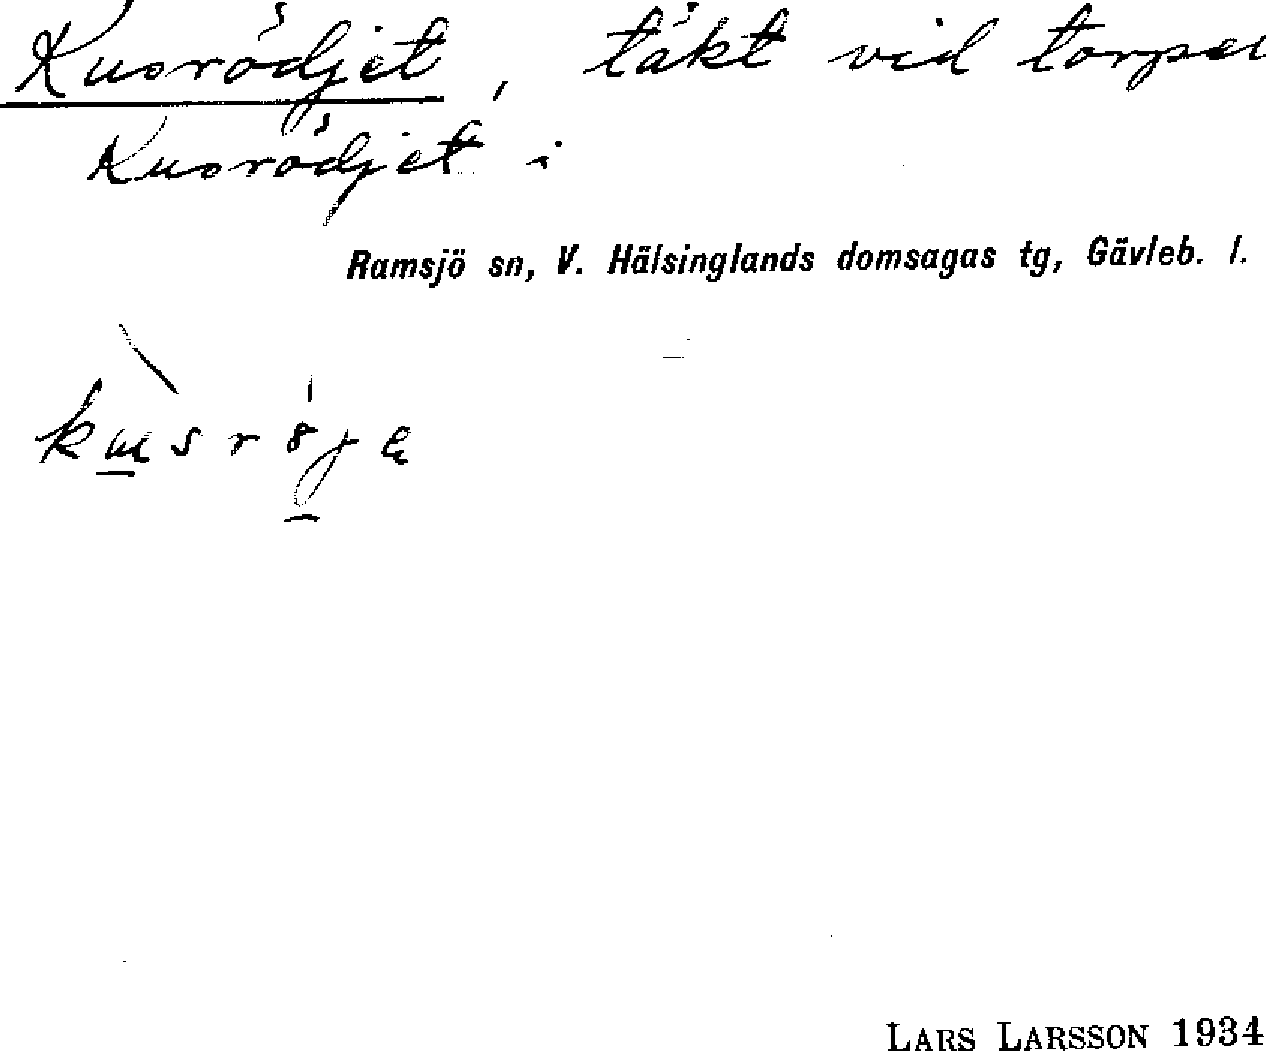 Kusrödjet, täkt vid torpet
Kusrödjet i
Ramsjö sn, V. Hälsinglands domsagas tg, Gävleb. l.
LARS LARSSON 1934